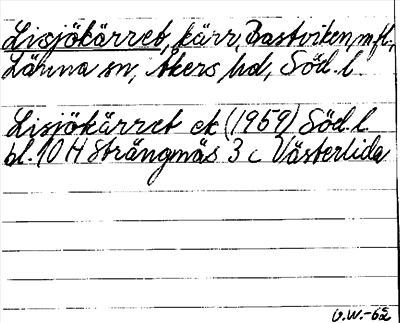 Lisjökärret, kärr, Bastviken, m.fl.,
Länna sn, Åkers hd, Söd. l.
Lisjökärret ek (1959) Söd. l.
bl. 10 H Strängnäs 3 c Västerlida
G.W.-62